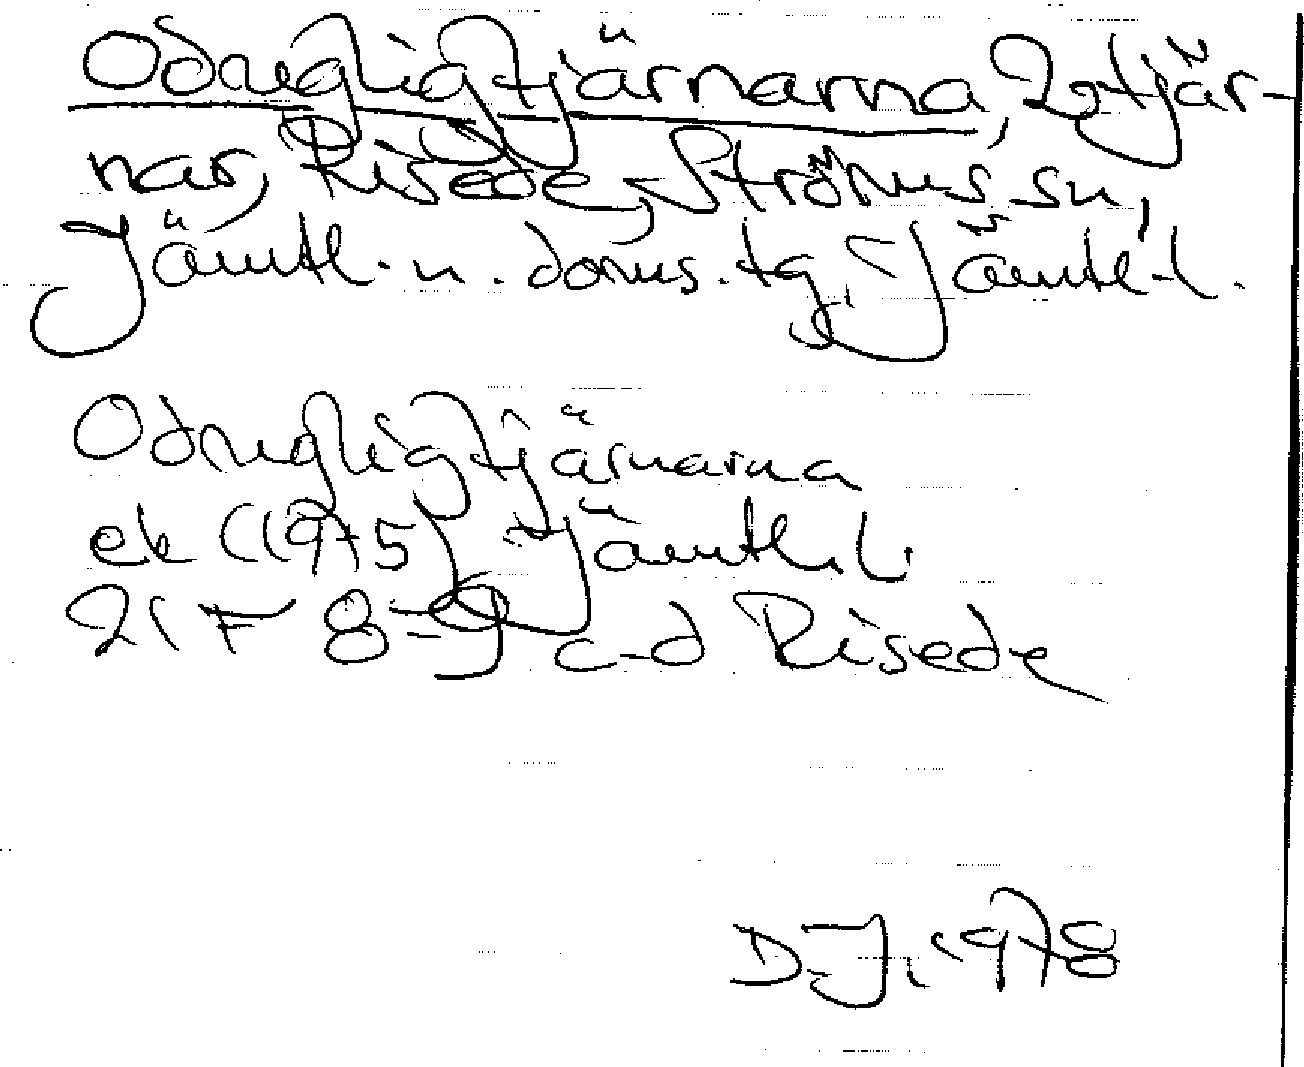 Odugligtjärnarna, 2 tjär-
nar, Risede, Ströms sn,
Jämtl. n. doms. tg, Jämtl. l.
Odugligtjärnarna
ek (1975) Jämtl. l.
21 F 8-9 c-d Risede
D.J. 1978